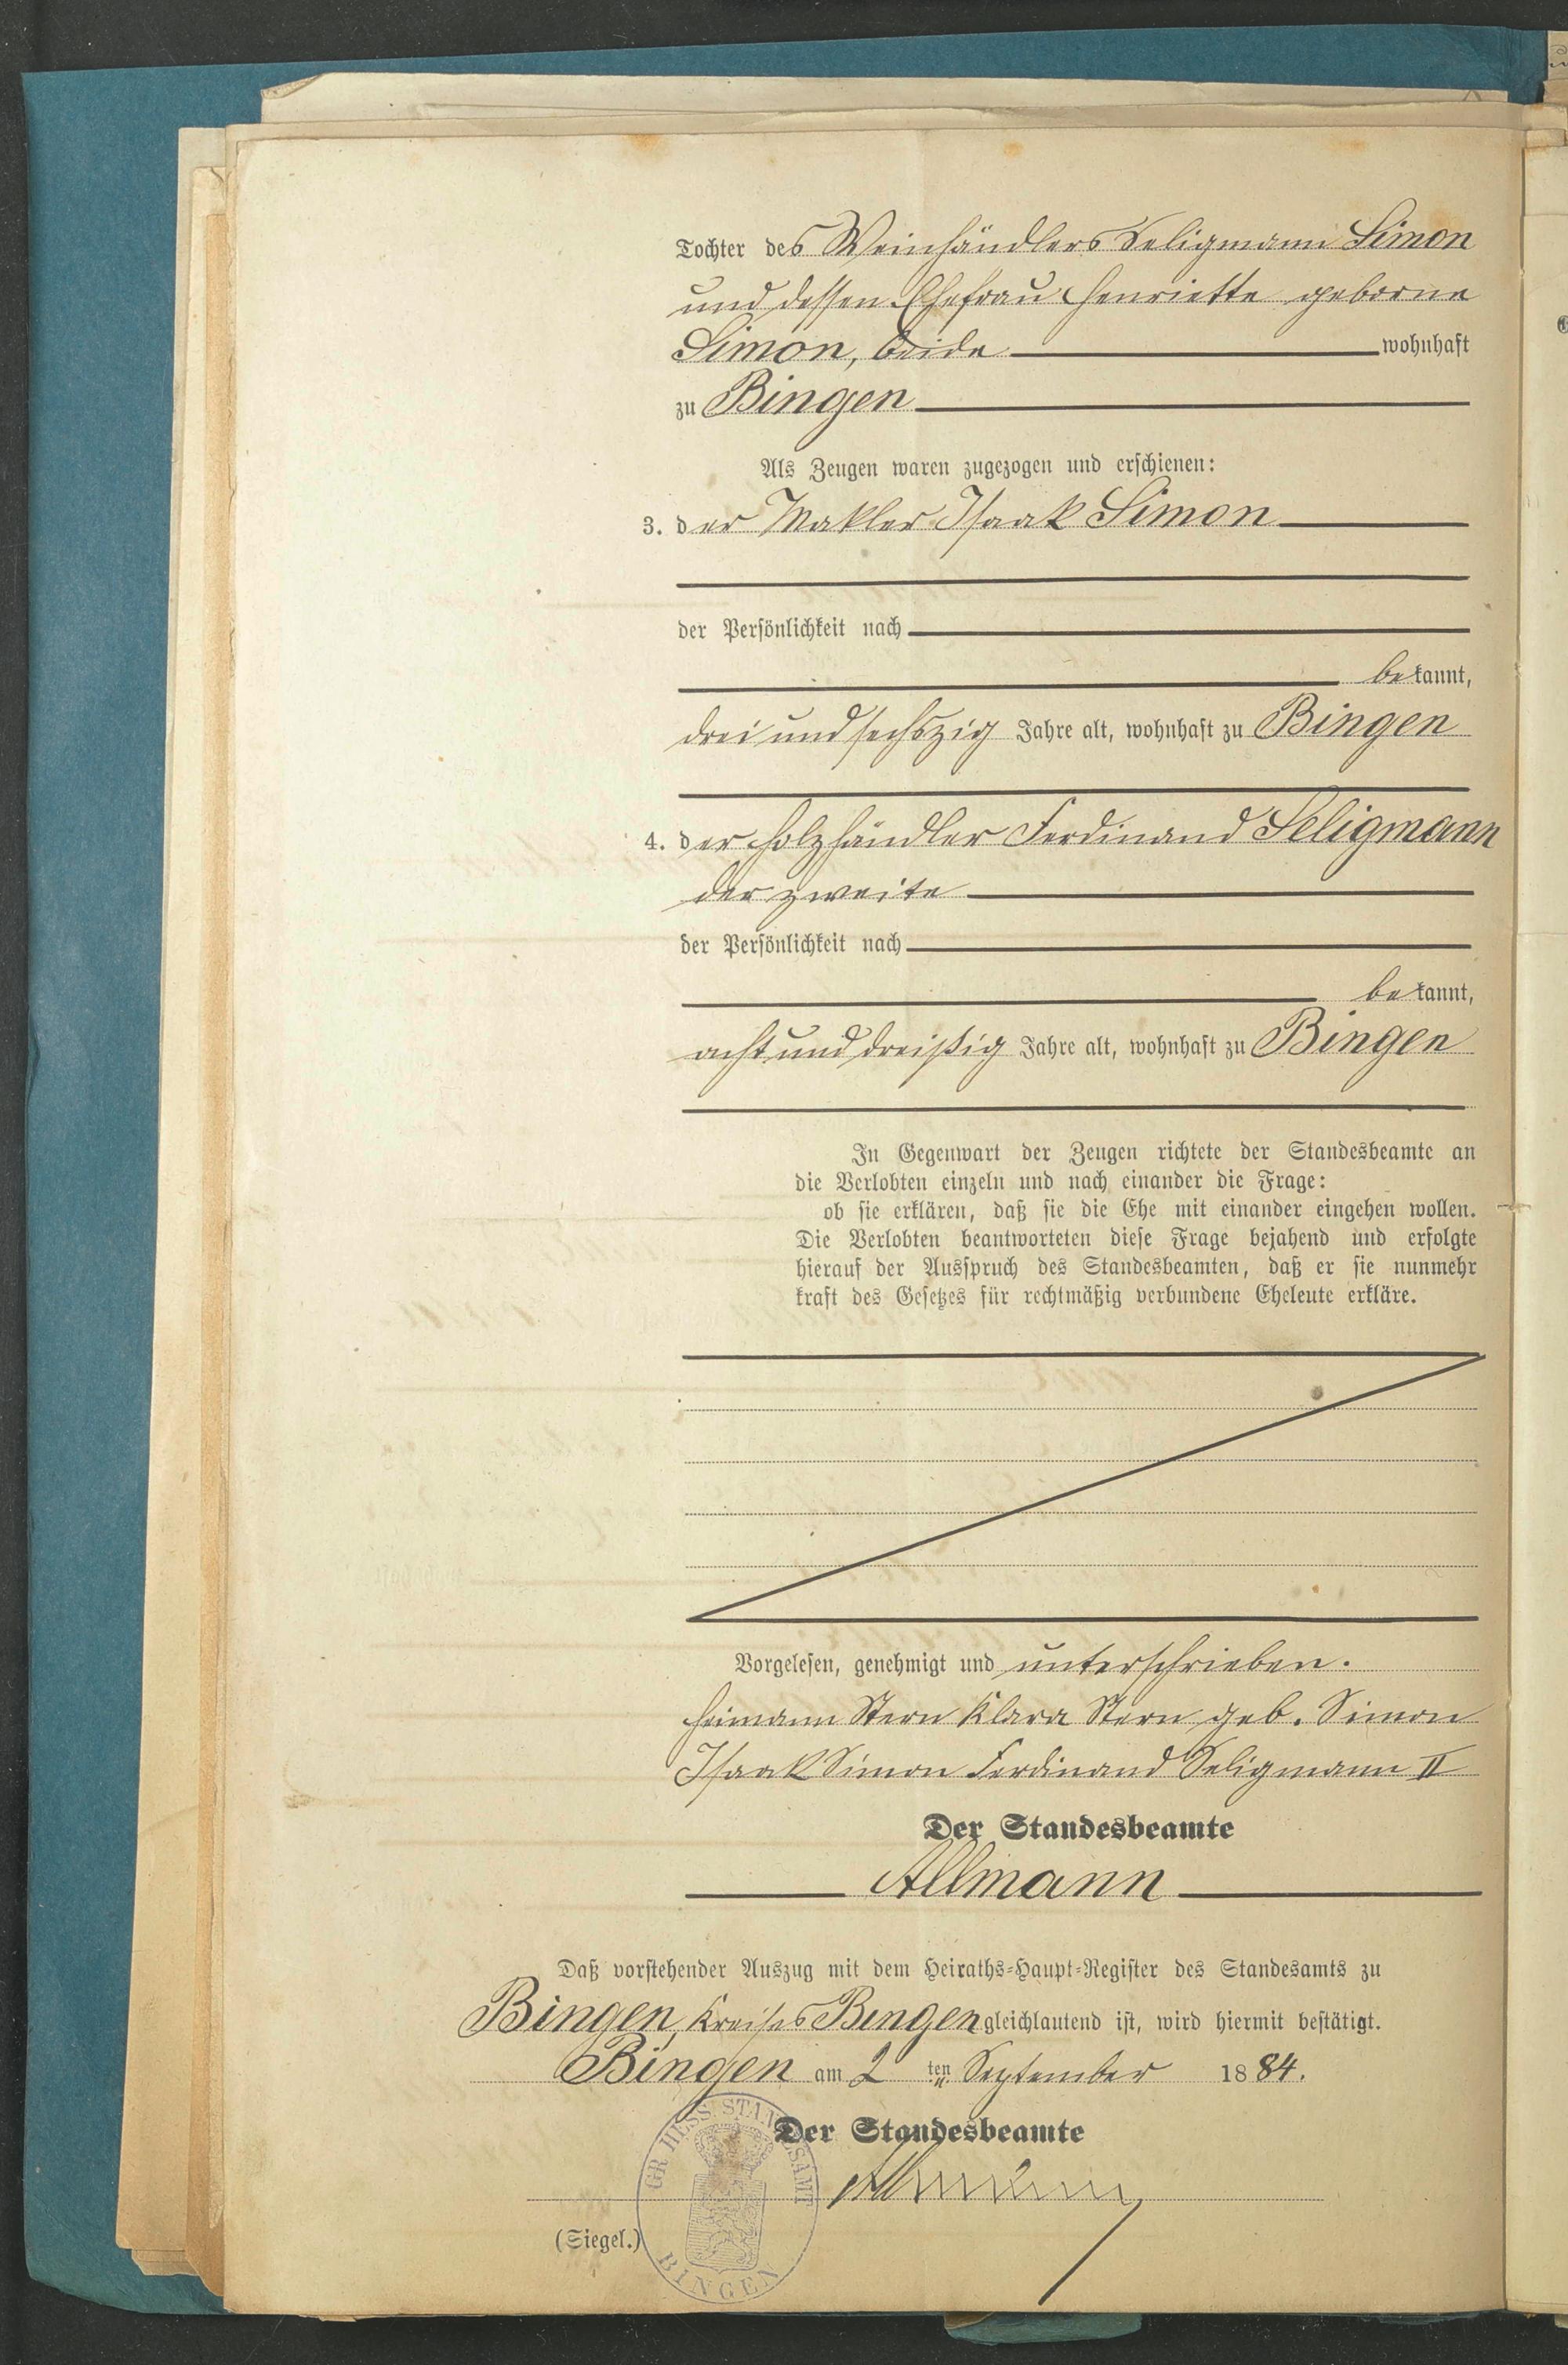 Tochter des Weinhändlers Seligmann Simon
und dessen Ehefrau Henriette geborne
Simon, beide wohnhaft
zu Bingen
Als Zeugen waren zugezogen und erschienen:
3. der Makler Isaak Simon
der Persönlichkeit nach
bekannt,
drei und sechszig Jahre alt, wohnhaft zu Bingen
4. der Holzhändler Ferdinand Seligmann
der zweite
der Persönlichkeit nach
bekannt,
acht und dreißig Jahre alt, wohnhaft zu Bingen
In Gegenwart der Zeugen richtete der Standesbeamte an
die Verlobten einzeln und nach einander die Frage:
ob sie erklären, daß sie die Ehe mit einander eingehen wollen.
Die Verlobten beantworteten diese Frage bejahend und erfolgte
hierauf der Ausspruch des Standesbeamten, daß er sie nunmehr
kraft des Gesetzes für rechtmäßig verbundene Eheleute erkläre.
Vorgelesen, genehmigt und unterschrieben.
Heimann Stern Klara Stern geb. Simon
Isaak Simon Ferdinand Seligmann II
Der Standesbeamte
Allmann
Daß vorstehender Auszug mit dem Heiraths-Haupt-Register des Standesamts zu
Bingen, Kreises Bingen gleichlautend ist, wird hiermit bestätigt.
Bingen am 2 ten September 1884.
Der Standesbeamte
Allmann
(Siegel.)
GR. HESS. STANDESAMT
BINGEN